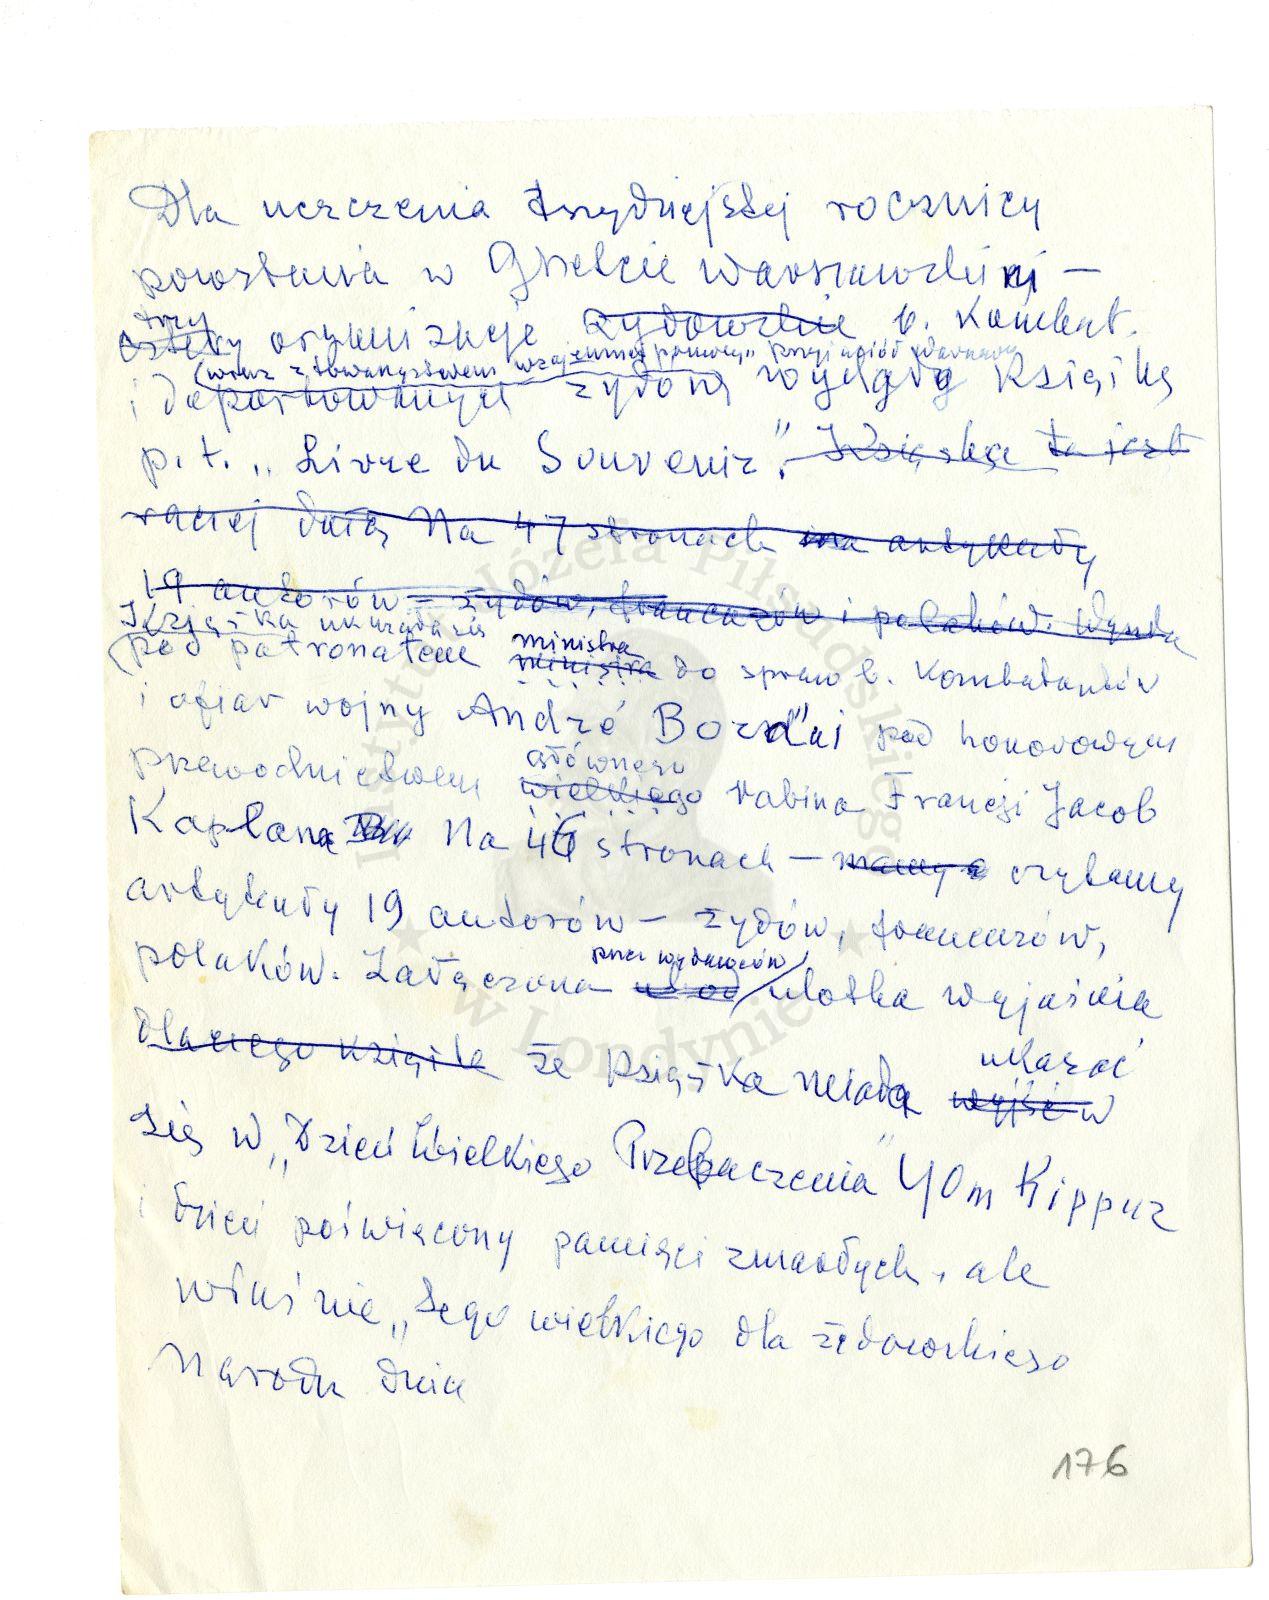 Dla uczczenia trzydziejstej rocznicy
powstania w Ghetcie Warszawskim —
trzy
cztery organizacje żydowskie b. Kombat.
(wraz z towarzystwem wzajemnej pomocy „przyjaciół Warszawy
i deportowanych żydów wydały Książkę
p. t. „Livre du Souvenir". Książka ta jest
raczej duża Na 47 stronach ma artykuły
19 autorów – żydów, francuzów i polaków. Wyszła
Książka ukazała się
(pod patronatem ministra ministra do spraw b. Kombatantów
i ofiar wojny André Bord'ai pod honorowym
przewodnictwem głównego wielkiego rabina Francji Jacob
Kaplana Na 46 stronach — mamy czytamy
artykuły 19 autorów — żydów, francuzów,
polaków. Załączona przez wydawców ulotka wyjaśnia
dlaczego książka że książka miała ukazać wyjść w
się w „Dzień Wielkiego Przebaczenia" Yom Kippur
i dzień poświęcony pamięci zmarłych, ale
właśnie „tego wielkiego dla żydowskiego
Narodu dnia
176
Instytut Józefa Piłsudskiego
w Londynie